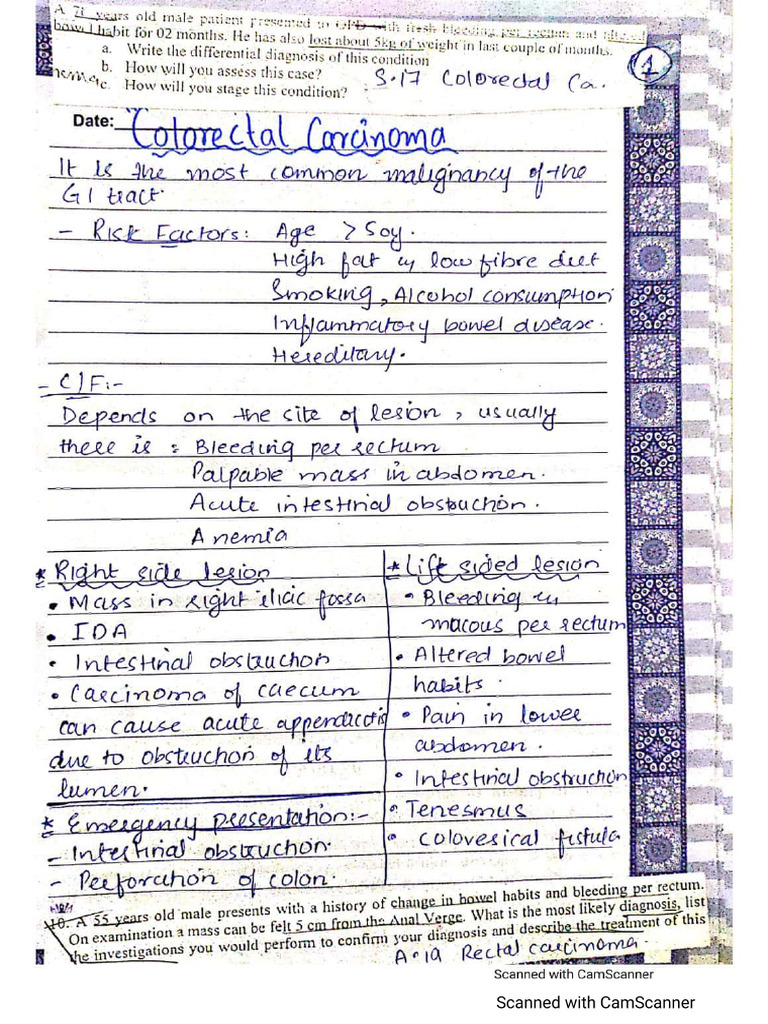 A 71 years old male patient presented to OPD with fresh bleeding per rectum and altered
bowl habit for 02 months. He has also lost about 5kg of weight in last couple of months.
a. Write the differential diagnosis of this condition
b. How will you assess this case?
c. How will you stage this condition?
S.17 Colorectal Ca.
1
Date:
Colorectal Carcinoma
It is the most common malignancy of the
GI tract.
- Risk Factors: Age > 50y.
High fat w low fibre diet
Smoking, Alcohol consumption
Inflammatory bowel disease.
Hereditary.
- C/F:-
Depends on the site of lesion, usually
there is: Bleeding per rectum
Palpable mass in abdomen.
Acute intestinal obstruction.
Anemia
* Right side lesion
• Mass in right iliac fossa
• IDA
• Intestinal obstruction
• Carcinoma of caecum
can cause acute appendicitis
due to obstruction of its
lumen.
* Emergency presentation:-
- Intestinal obstruction.
- Perforation of colon.
* Left sided lesion
• Bleeding w
mucous per rectum
• Altered bowel
habits.
• Pain in lower
abdomen.
• Intestinal obstruction
• Tenesmus
• Colovesical fistula
10. A 55 years old male presents with a history of change in bowel habits and bleeding per rectum.
On examination a mass can be felt 5 cm from the Anal Verge. What is the most likely diagnosis, list
the investigations you would perform to confirm your diagnosis and describe the treatment of this
A.19 Rectal carcinoma.
Scanned with CamScanner
Scanned with CamScanner